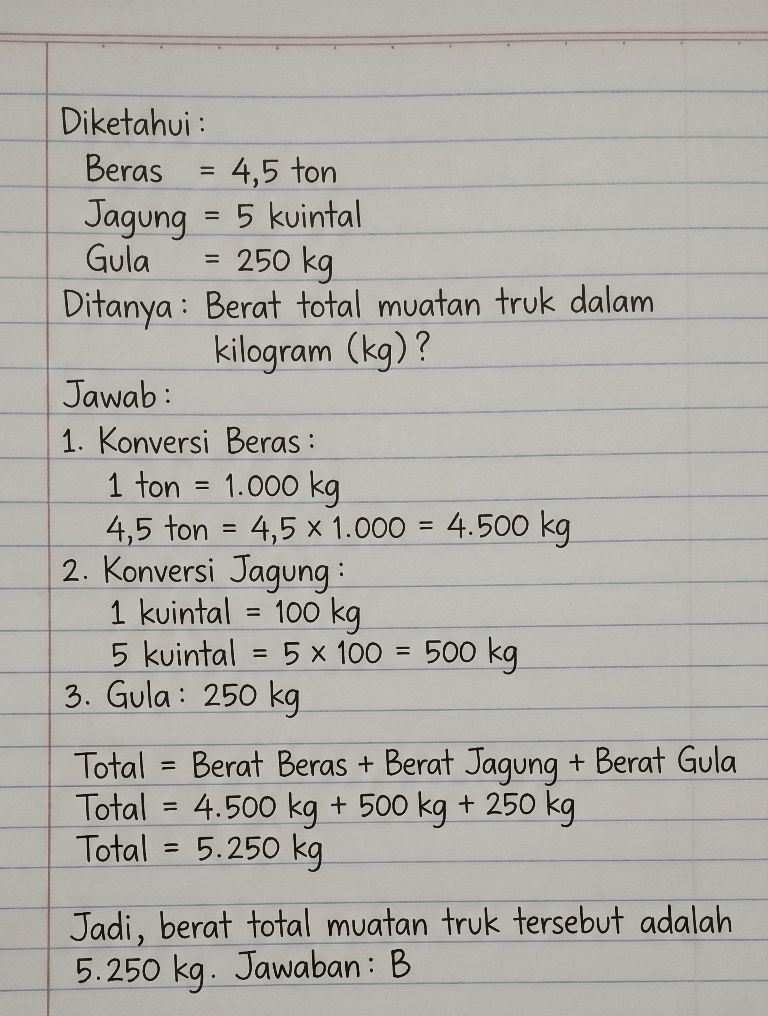 Diketahui :
Beras = 4,5 ton
Jagung = 5 kuintal
Gula = 250 kg
Ditanya : Berat total muatan truk dalam
kilogram (kg) ?
Jawab :
1. Konversi Beras :
1 ton = 1.000 kg
4,5 ton = 4,5 x 1.000 = 4.500 kg
2. Konversi Jagung :
1 kuintal = 100 kg
5 kuintal = 5 x 100 = 500 kg
3. Gula : 250 kg
Total = Berat Beras + Berat Jagung + Berat Gula
Total = 4.500 kg + 500 kg + 250 kg
Total = 5.250 kg
Jadi, berat total muatan truk tersebut adalah
5.250 kg. Jawaban : B